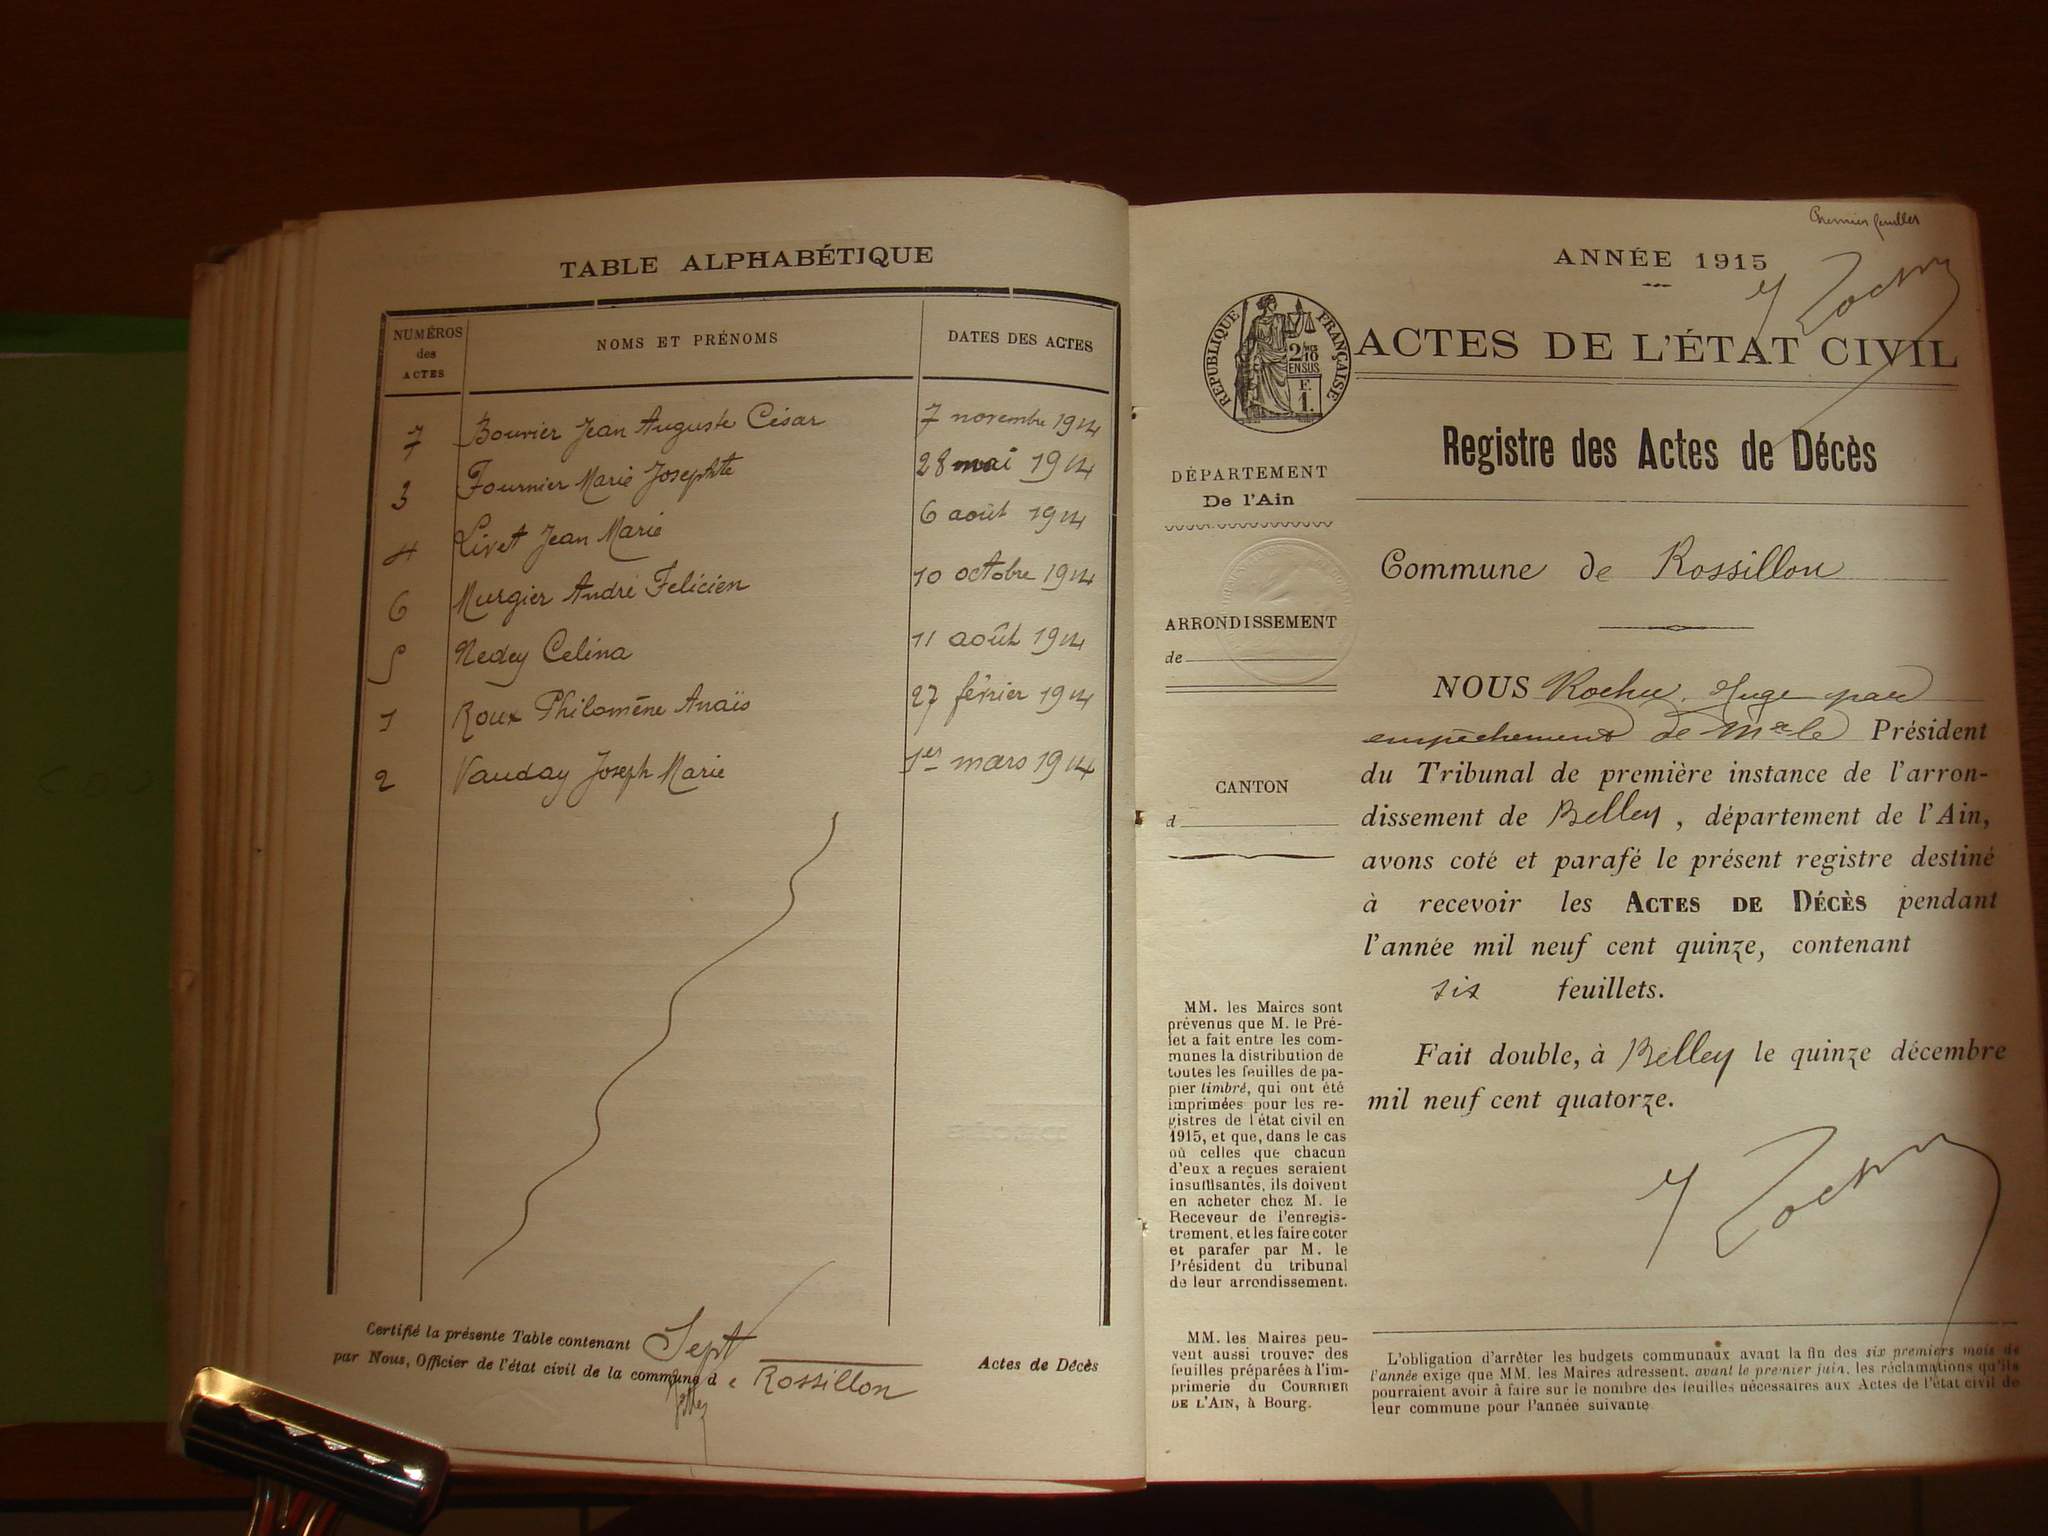 TABLE ALPHABÉTIQUE
NUMÉROS des ACTES NOMS ET PRÉNOMS DATES DES ACTES
7 Bouvier Jean Auguste César 7 novembre 1914
3 Fournier Marie Josephte 28 mai 1914
4 Livet Jean Marie 6 août 1914
6 Murgier André Felicien 10 octobre 1914
5 Nedey Celina 11 août 1914
1 Roux Philomène Anaïs 27 février 1914
2 Vauday Joseph Marie 1er mars 1914
Certifié la présente Table contenant Sept Actes de Décès
par Nous, Officier de l'état civil de la commune d e Rossillon
Premier feuillet
ANNÉE 1915
RÉPUBLIQUE FRANÇAISE
2/10 EN SUS
F. 1.
ACTES DE L'ÉTAT CIVIL
Registre des Actes de Décès
DÉPARTEMENT
De l'Ain
Commune de Rossillon
ARRONDISSEMENT
de
CANTON
d
NOUS Rochu, Juge par
empêchement de Mr le Président
du Tribunal de première instance de l'arron-
dissement de Belley, département de l'Ain,
avons coté et parafé le présent registre destiné
à recevoir les ACTES DE DÉCÈS pendant
l'année mil neuf cent quinze, contenant
six feuillets.
Fait double, à Belley le quinze décembre
mil neuf cent quatorze.
MM. les Maires sont
prévenus que M. le Pré-
fet a fait entre les com-
munes la distribution de
toutes les feuilles de pa-
pier timbré, qui ont été
imprimées pour les re-
gistres de l'état civil en
1915, et que, dans le cas
où celles que chacun
d'eux a reçues seraient
insuffisantes, ils doivent
en acheter chez M. le
Receveur de l'enregis-
trement, et les faire coter
et parafer par M. le
Président du tribunal
de leur arrondissement.
MM. les Maires peu-
vent aussi trouver des
feuilles préparées à l'im-
primerie du COURRIER
DE L'AIN, à Bourg.
L'obligation d'arrêter les budgets communaux avant la fin des six premiers mois de
l'année exige que MM. les Maires adressent, avant le premier juin, les réclamations qu'ils
pourraient avoir à faire sur le nombre des feuilles nécessaires aux Actes de l'état civil de
leur commune pour l'année suivante